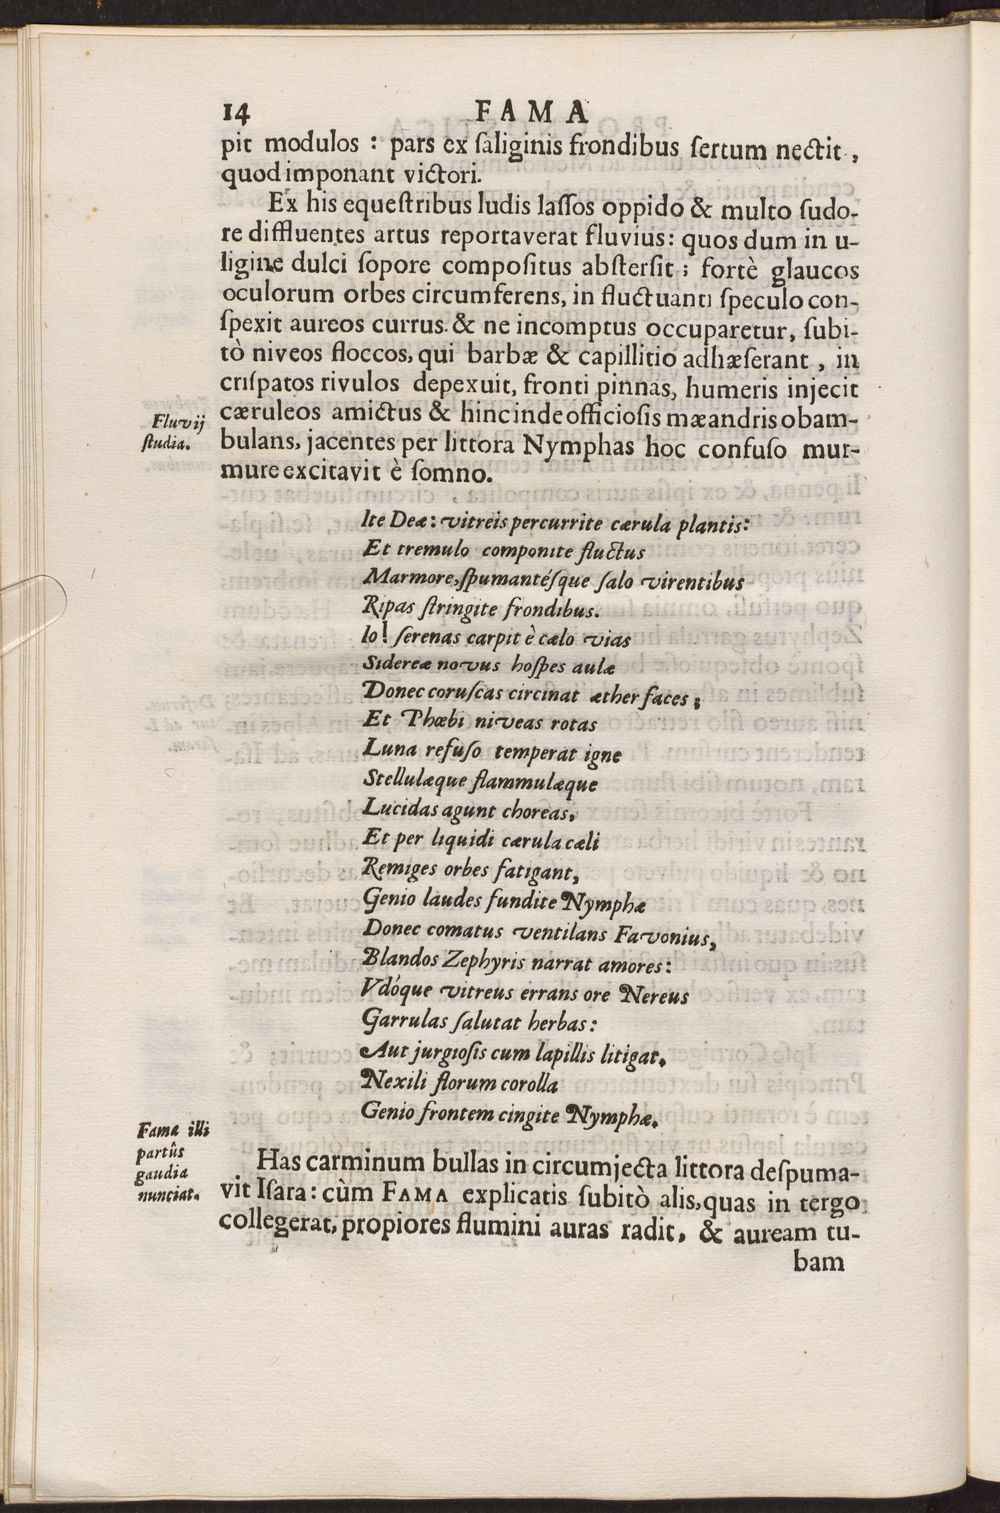 14 FAMA
pit modulos : pars ex ſaliginis frondibus ſertum nectit,
quod imponant victori.
Ex his equeſtribus ludis laſſos oppido & multo ſudo-
re diffluentes artus reportaverat fluvius: quos dum in u-
ligine dulci ſopore compoſitus abſterſit ; fortè glaucos
oculorum orbes circumferens, in fluctuanti ſpeculo con-
ſpexit aureos currus. & ne incomptus occuparetur, ſubi-
tò niveos floccos, qui barbæ & capillitio adhæſerant, in
criſpatos rivulos depexuit, fronti pinnas, humeris injecit
cæruleos amictus & hinc inde officioſis mæandris obam-
Fluvij
ſtudia.
bulans, jacentes per littora Nymphas hoc confuſo mur-
mure excitavit è ſomno.
Ite Deæ: vitreis percurrite cærula plantis:
Et tremulo componite fluctus
Marmore, ſpumantéſque ſalo virentibus
Ripas ſtringite frondibus.
Io! ſerenas carpit è cælo vias
Sidereæ novus hoſpes aulæ
Donec coruſcas circinat æther faces;
Et Phœbi niveas rotas
Luna refuſo temperat igne
Stellulæque flammulæque
Lucidas agunt choreas,
Et per liquidi cærula cæli
Remiges orbes fatigant,
Genio laudes fundite Nymphæ
Donec comatus ventilans Favonius,
Blandos Zephyris narrat amores:
Vdóque vitreus errans ore Nereus
Garrulas ſalutat herbas:
Aut jurgioſis cum lapillis litigat,
Nexili florum corolla
Genio frontem cingite Nymphæ.
Fama illi
partûs
gaudia
nunciat.
Has carminum bullas in circumjecta littora deſpuma-
vit Iſara: cùm FAMA explicatis ſubitò alis, quas in tergo
collegerat, propiores flumini auras radit, & auream tu-
bam